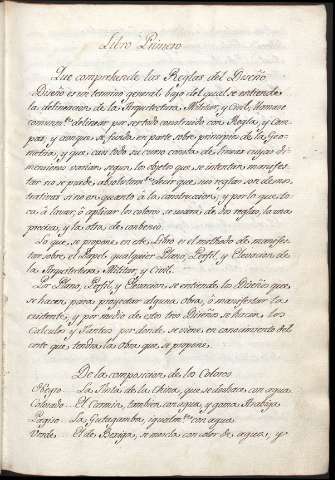 Libro Primero
Que comprehende las Reglas del Diseño
Diseño es un termino general, bajo del qual se entiende
la delineacion de la Arquitectura Militar, y Civil, llamase
comunmte. delinear por ser todo construido con Regla, y Com-
pas, y aunque se funda en parte sobre principios de la Geo-
metria, y que casi todo su como consta de lineas cuyas di-
menciones varian segun los objetos que se intentan manifes-
tar no se puede absolutamte. decir que sus reglas son demos-
trativas si no en quanto à la construccion; y por lo que to-
ca à lavar, ò aplicar los colores se usara de dos reglas, la una
precisa, y la otra de combenio.
Lo que se propone en este Libro es el methodo de manifes-
tar sobre el Papel qualquier Plano, Perfil, y Elevacion de
la Arquitectura Militar y Civil.
Por Plano, Perfil, y Elevacion se entiende los Diseños que
se hacen, para proyectar alguna obra, ò manifestar la
existente, y por medio de estos tres Diseños se hacen los
Calculos y Tanteos por donde se viene en conocimiento del
coste que tendra la obra que se propone.
De la composicion de los Colores
Negro... La Tinta de la China, que se deshace con agua
Colorado... El Carmin, tambien con agua, y goma Arabiga
Pagizo... La Gutagamba, igualmte. con agua
Verde... El de Bexiga, se mezcla con olor de agua, y